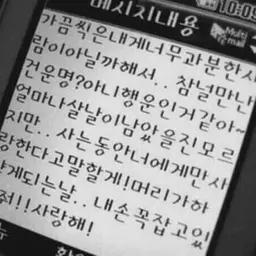 메시지내용
10:09
Multi
mail
가끔씩은내게너무과분한사
람이아닐까해서.. 참널만난
건운명?아니행운인거같아~
얼마나살날이남았을진모르
지만.. 사는동안너에게만사
랑한다고말할게!머리가하
얗게되는날.. 내손꼭잡고있
줘!!사랑해!